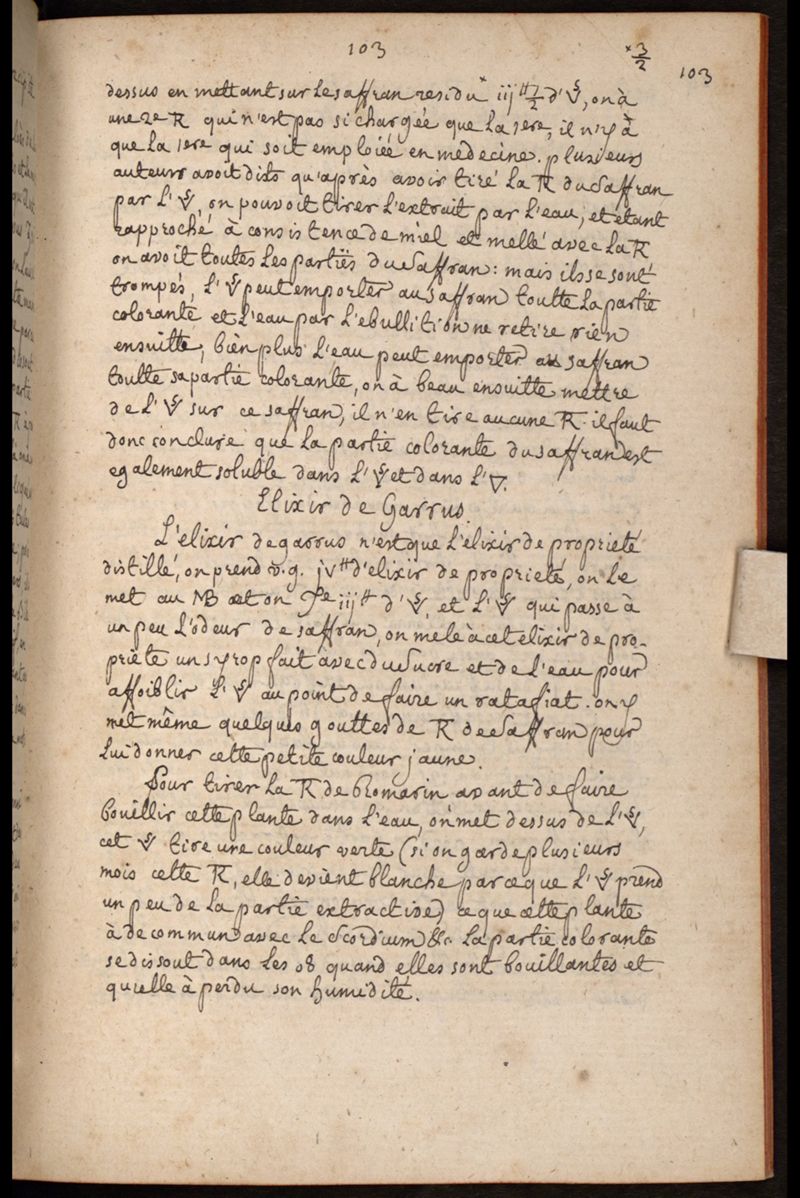 103
× 3/2
103
dessus en mettant sur le saffran residu iij ℔ 1/2 d'🜈, on à
une 2e R qui n'est pas si chargée que la 1ere, il n'y à
que la 1ere qui soit emploiée en médecine. plusieurs
auteurs avoit dits qu'après avoir tiré la R du saffran
par l'🜈, on pouvoit tirer l'extrait par l'eau, et étant
rapproché à consistence de miel et mellé avec la R
on avoit toutes les partiës du saffran: mais ils se sont
trompés, l'🜈 peut emporter au saffran toutte la partie
colorante et l'eau par l'ebullition ne retire rien
ensuitte, bien plus l'eau peut emporter au saffran
toutte sa partie colorante, on à beau ensuitte mettre
de l'🜈 sur ce saffran, il n'en tire aucune R. il faut
donc conclure que la partie colorante du saffran est
egalement soluble dans l'🜈 et dans l'🜄.
Elixir de Garrus.
L'elixir de garrus n'est que l'élixir de proprieté
distillé, on prend v.g. jv ℔ d'elixir de proprieté, on le
met au MB et on iij ℔ d'🜈, et l'🜈 qui passe à
un peu l'odeur de saffran, on mele à cet elixir de pro-
prieté un syrop fait avec du sucre et de l'eau pour
affoiblir l'🜈 au point de faire un ratafiat. on y
met même quelques gouttes de R de saffran pour
lui donner cette petite couleur jaune.
Pour tirer la R de Romarin avant de faire
bouillir cette plante dans l'eau, on met dessus de l'🜈,
cet 🜈 tire une couleur verte (si on garde plusieurs
mois cette R, elle devient blanche parce que l'🜈 prend
un peu de la partie extractive) ce que cette plante
à de commun avec le scordium &c. la partie colorante
se dissout dans les 08 quand elles sont bouillantes et
qu'elle à perdu son humidité.